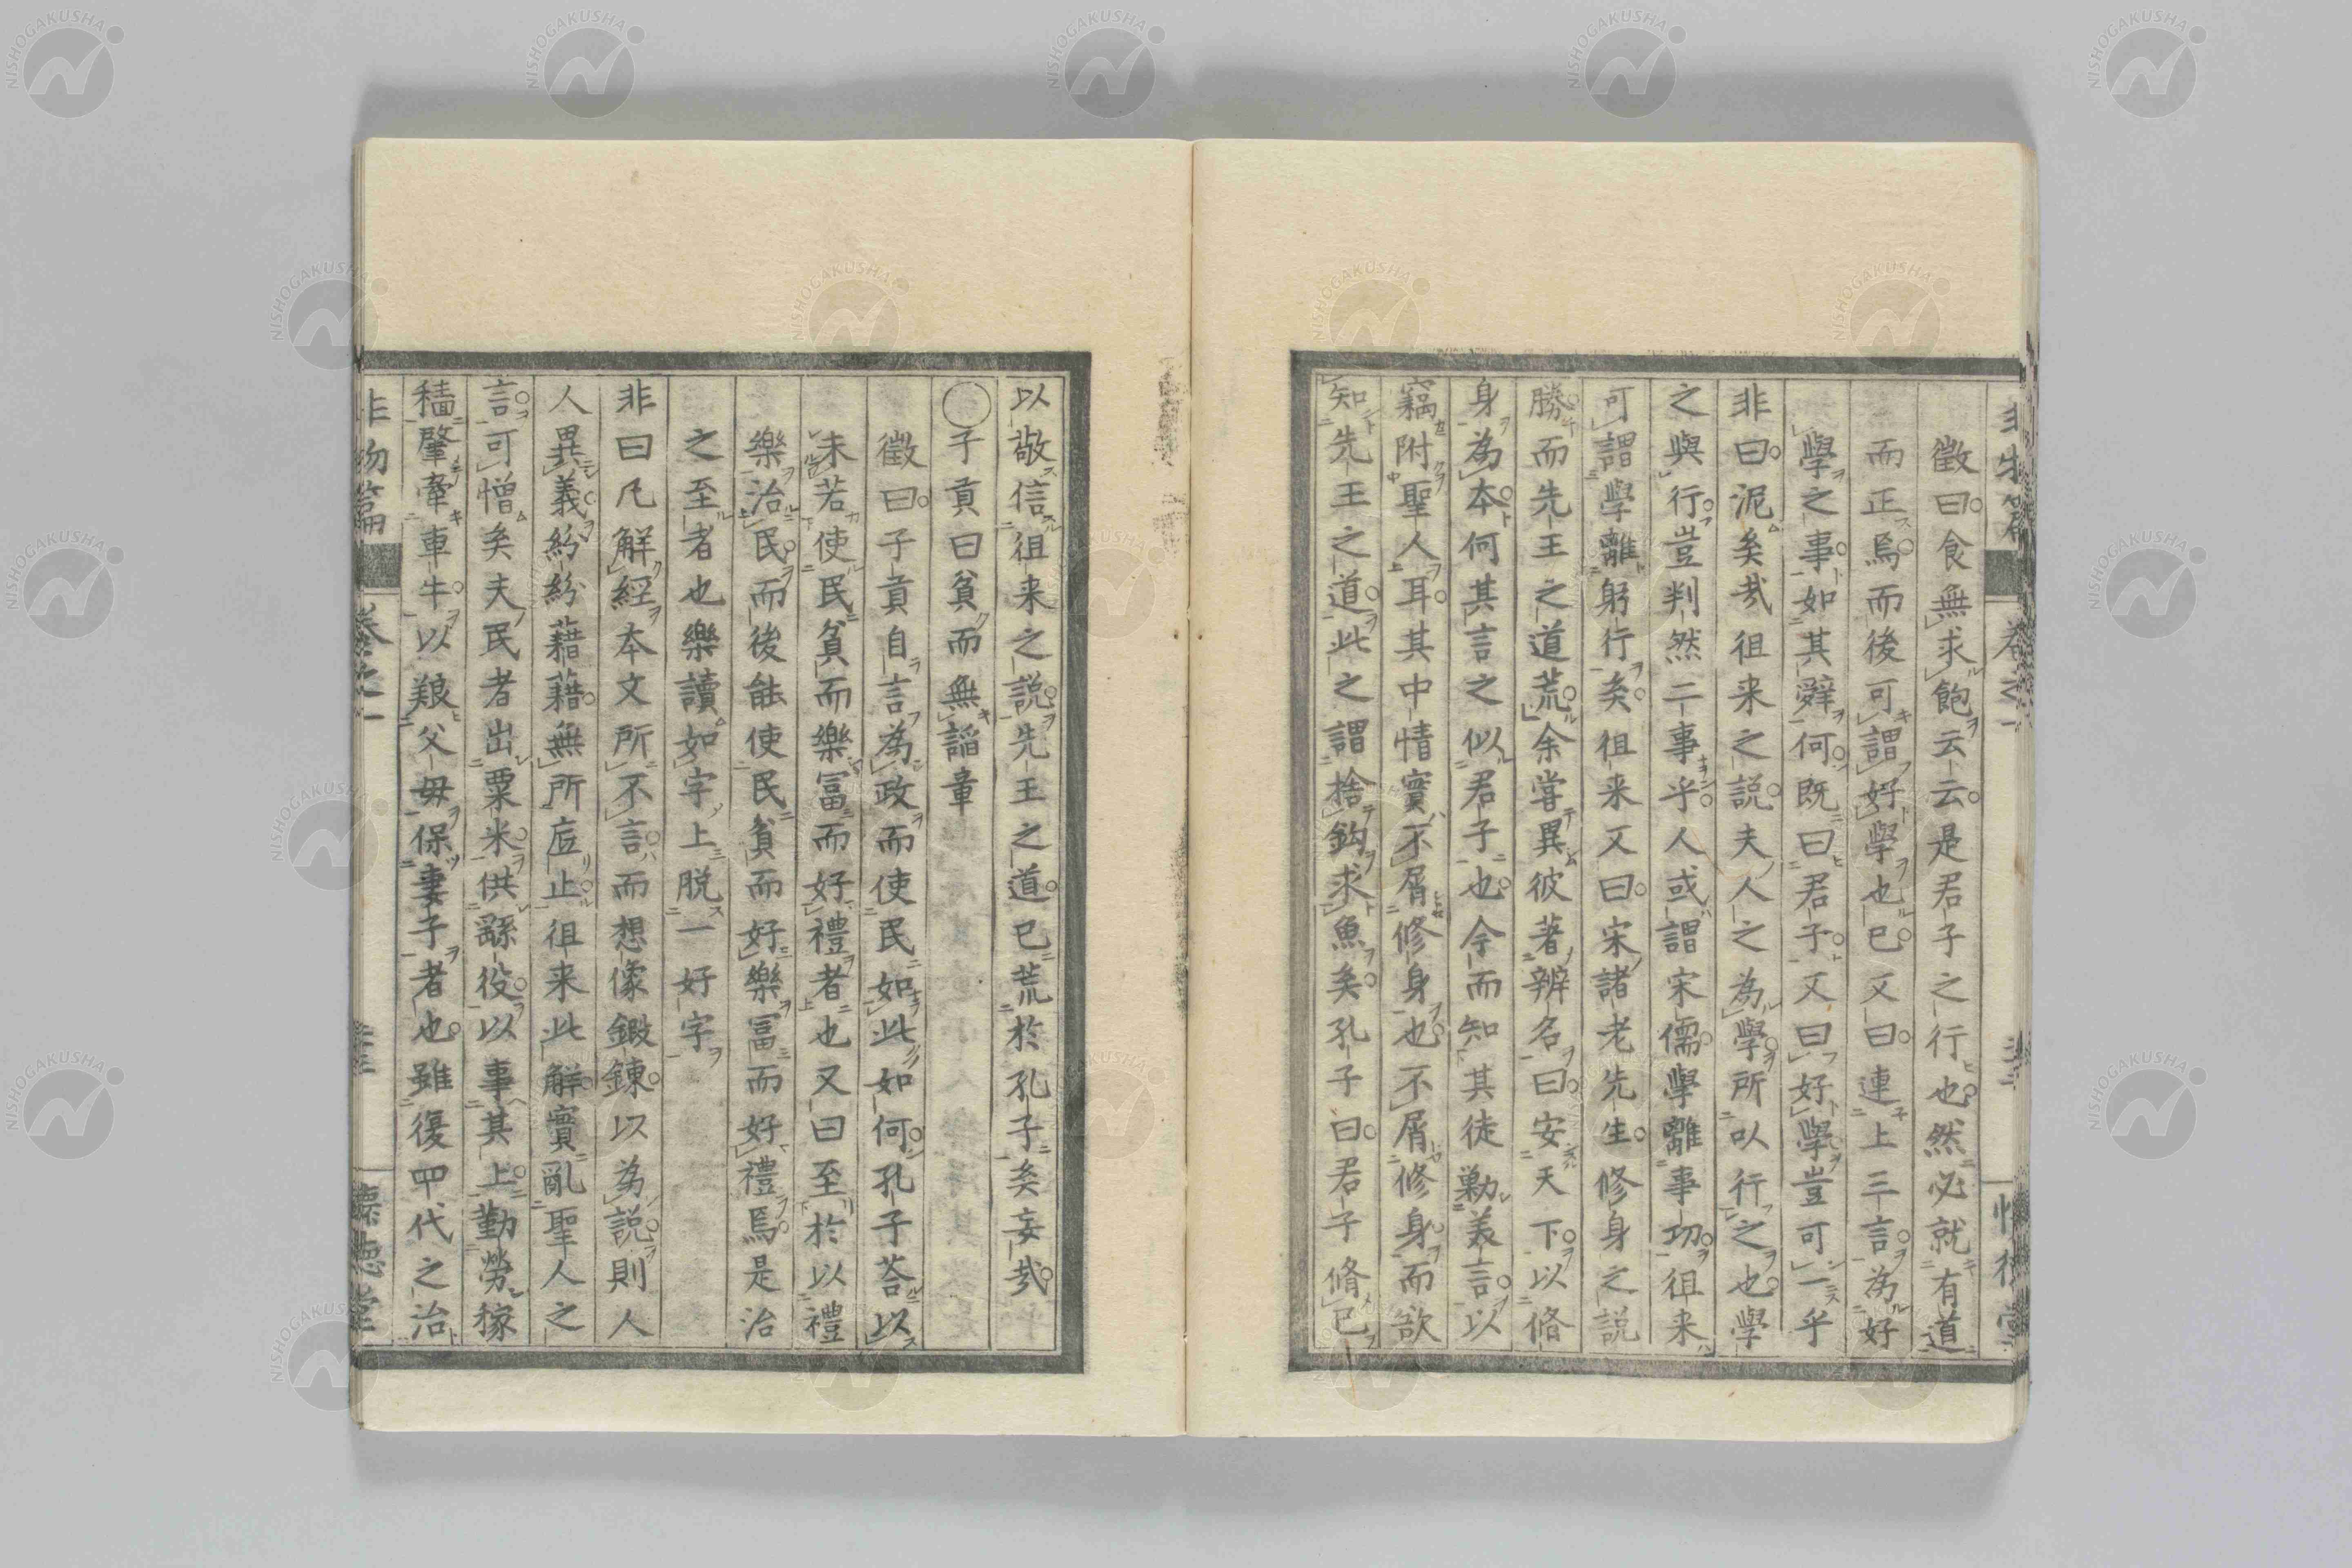 徵曰食無求飽云云是君子之行也然必就有道
而正焉而後可謂好學也已又曰連上三言為好
學之事如其辭何既曰君子又曰好學豈可一乎
非曰泥矣哉徂来之説夫人之為學所以行之也學
之與行豈判然二事乎人或謂宋儒學離事功徂来
可謂學離躬行矣徂来又曰宋諸老先生修身之説
勝而先王之道荒余嘗異彼著辨名曰安天下以脩
身為本何其言之似君子也今而知其徒勦義言以
竊附聖人耳其中情實不屑修身也不屑修身而欲
知先王之道此之謂捨鈎求魚矣孔子曰君子脩已
以敬信徂来之説先王之道已荒於孔子矣妄哉
〇子貢曰貧而無諂章
徵曰子貢自言為政而使民如此如何孔子荅以
未若使民貧而樂冨而好禮者也又曰至於以禮
樂治民而後能使民貧而好樂冨而好禮焉是治
之至者也樂讀如字上脱一好字
非曰凡解經本文所不言而想像鍛錬以為説則人
人異義紛紛藉藉無所底止徂来此解實亂聖人之
言可憎矣夫民者出粟米供繇役以事其上勤勞稼
穡肇牽車牛以艱父毋保妻子者也雖復四代之治
非物篇 卷之一